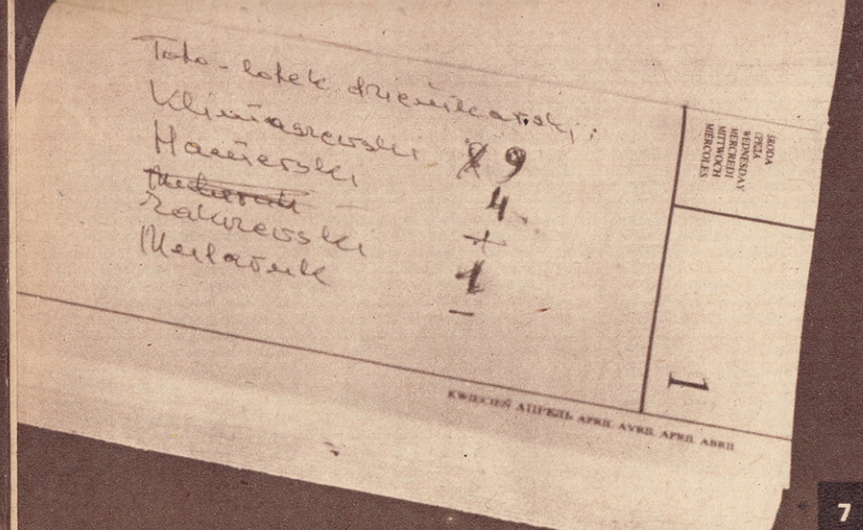 Toto-lotek dziennikarski:
Klimaszewski 9
Hanierski 4
Zakrzewski 1
–
ŚRODA
СРЕДА
WEDNESDAY
MERCREDI
MITTWOCH
MIÉRCOLES
1
KWIECIEŃ АПРЕЛЬ APRIL AVRIL APRIL ABRIL
7